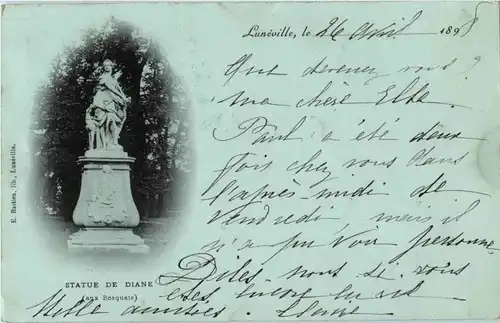 Lunéville, le 26 avril 1898
Que devenez vous?
ma chère Elba.
Paul a été deux
fois chez vous dans
l'après-midi de
vendredi mais il
n'a pu voir personne
Dites-nous si vous
êtes encore
Mille amitiés.
STATUE DE DIANE
(aux Bosquets)
E. Bastien, lib., Lunéville.